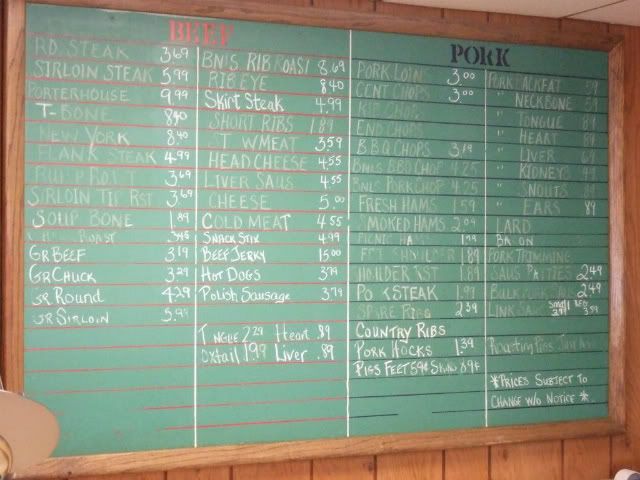 BEEF
RD. STEAK 3.69
SIRLOIN STEAK 5.99
PORTERHOUSE 9.99
T-BONE 8.40
NEW YORK 8.40
FLANK STEAK 4.99
RUMP ROAST 3.69
SIRLOIN TIP RST 3.69
SOUP BONE 1.89
ROAST
GR BEEF 3.19
GR CHUCK 3.29
GR ROUND 4.29
GR SIRLOIN 5.99
BNLS RIB ROAST 8.69
RIB EYE 8.40
Skirt Steak 4.99
SHORT RIBS 1.89
ST W MEAT 3.59
HEAD CHEESE 4.55
LIVER SAUS 4.55
CHEESE 5.00
COLD MEAT 4.55
SNACK STIX 4.99
BEEF JERKY 15.00
HOT DOGS 3.79
POLISH SAUSAGE 3.79
TNGUE 2.29 Heart .89
OXTAIL 1.99 Liver .89
PORK
PORK LOIN 3.00
CENT CHOPS 3.00
RIB CHOP
END CHOPS
BBQ CHOPS 3.19
BNLS BBQ CHOP 4.25
BNLS PORK CHOP 4.25
FRESH HAMS 1.59
SMOKED HAMS 2.09
PICNIC HA 1.99
SHOULDER 1.89
SHOULDER RST 1.89
PO K STEAK 1.99
SPARE RIBS 2.39
COUNTRY RIBS
PORK HOCKS 1.39
PIGS FEET 59¢ SKINS 89¢
PORK JACKFAT 59
" NECKBONE 59
" TONGUE 89
" HEART 89
" LIVER 69
" KIDNEYS 49
" SNOUTS 89
" EARS 89
LARD
BACON
PORK TRIMMING
SAUS PATTIES 2.49
BULK 2.49
LINK SAUS Small 2.99 REG 3.59
Roasting Pigs
*PRICES SUBJECT TO
CHANGE W/O NOTICE *